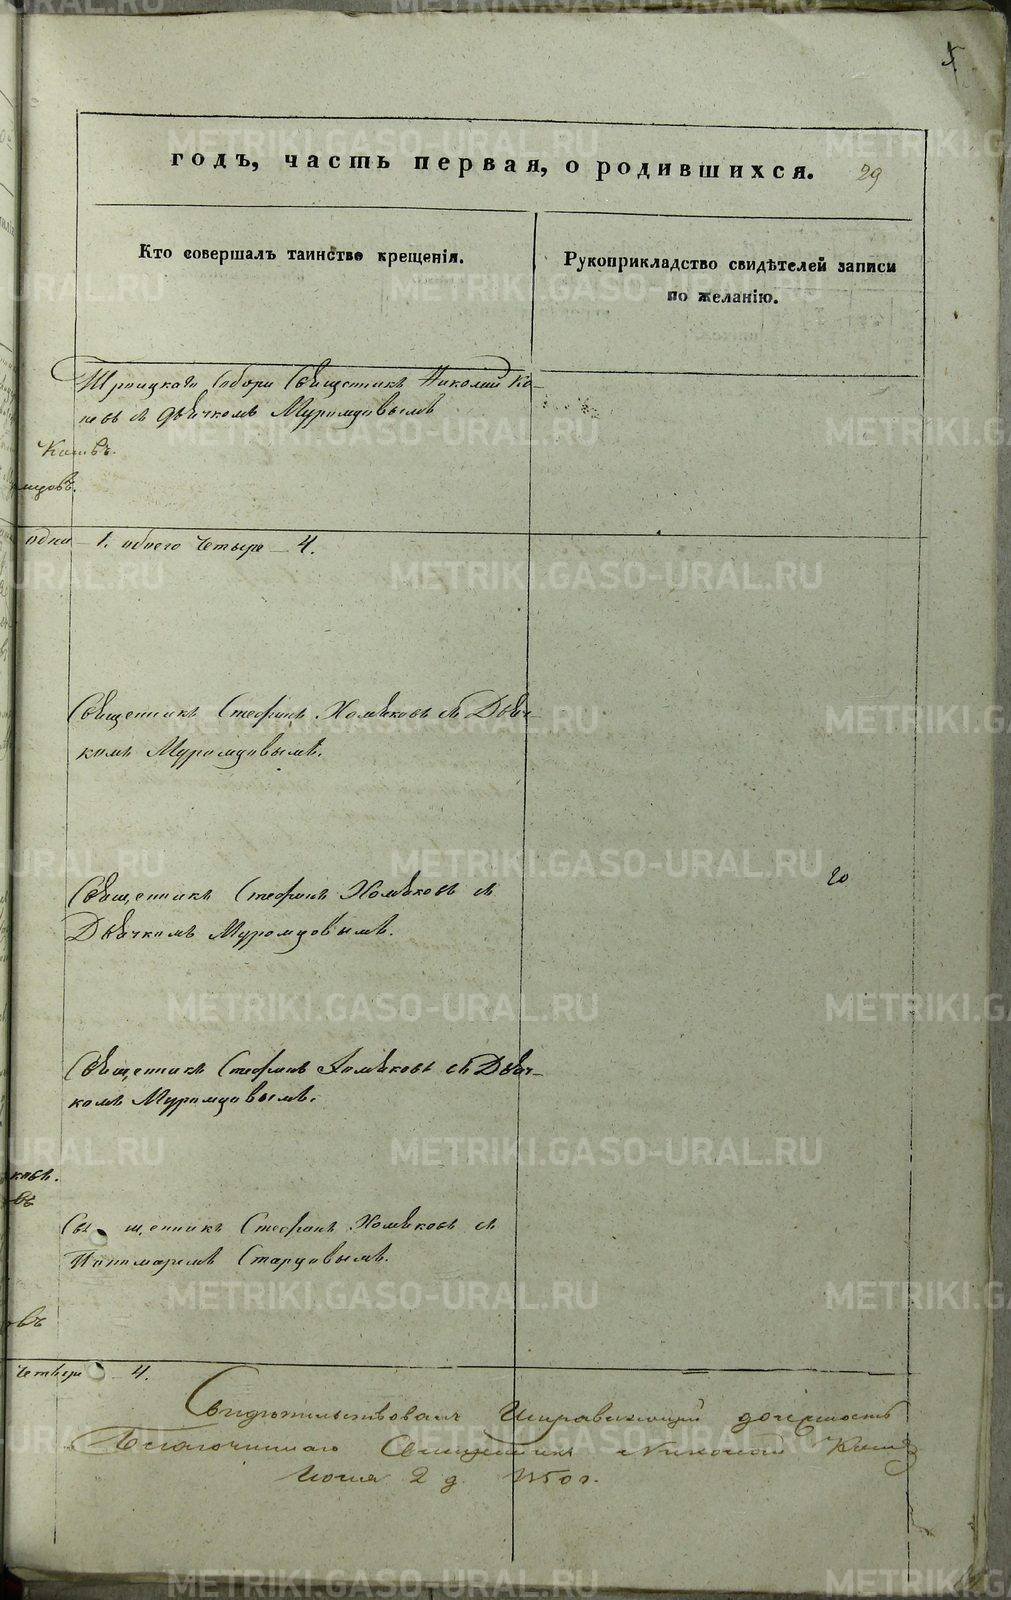 5.
годъ, часть первая, о родившихся. 29
Кто совершалъ таинство крещенія.
Рукоприкладство свидѣтелей записи
по желанію.
Троицкаго Собора Священникъ Николай Ко-
съ дьячкомъ Муромцовымъ
одна 1. обоего четыре 4.
Священникъ Стефанъ Хомяковъ съ Дьяч-
комъ Муромцовымъ.
Священникъ Стефанъ Хомяковъ съ
Дьячкомъ Муромцовымъ.
20
Священникъ Стефанъ Хомяковъ съ Дьяч-
комъ Муромцовымъ.
ковъ.
въ
Священникъ Стефанъ Хомяковъ съ
Пономаремъ Старцовымъ.
въ
четыре 4.
Свидѣтельствовалъ Исправляющій должность
Благочиннаго Священникъ Николай
2 д. 1850 г.
METRIKI.GASO-URAL.RU